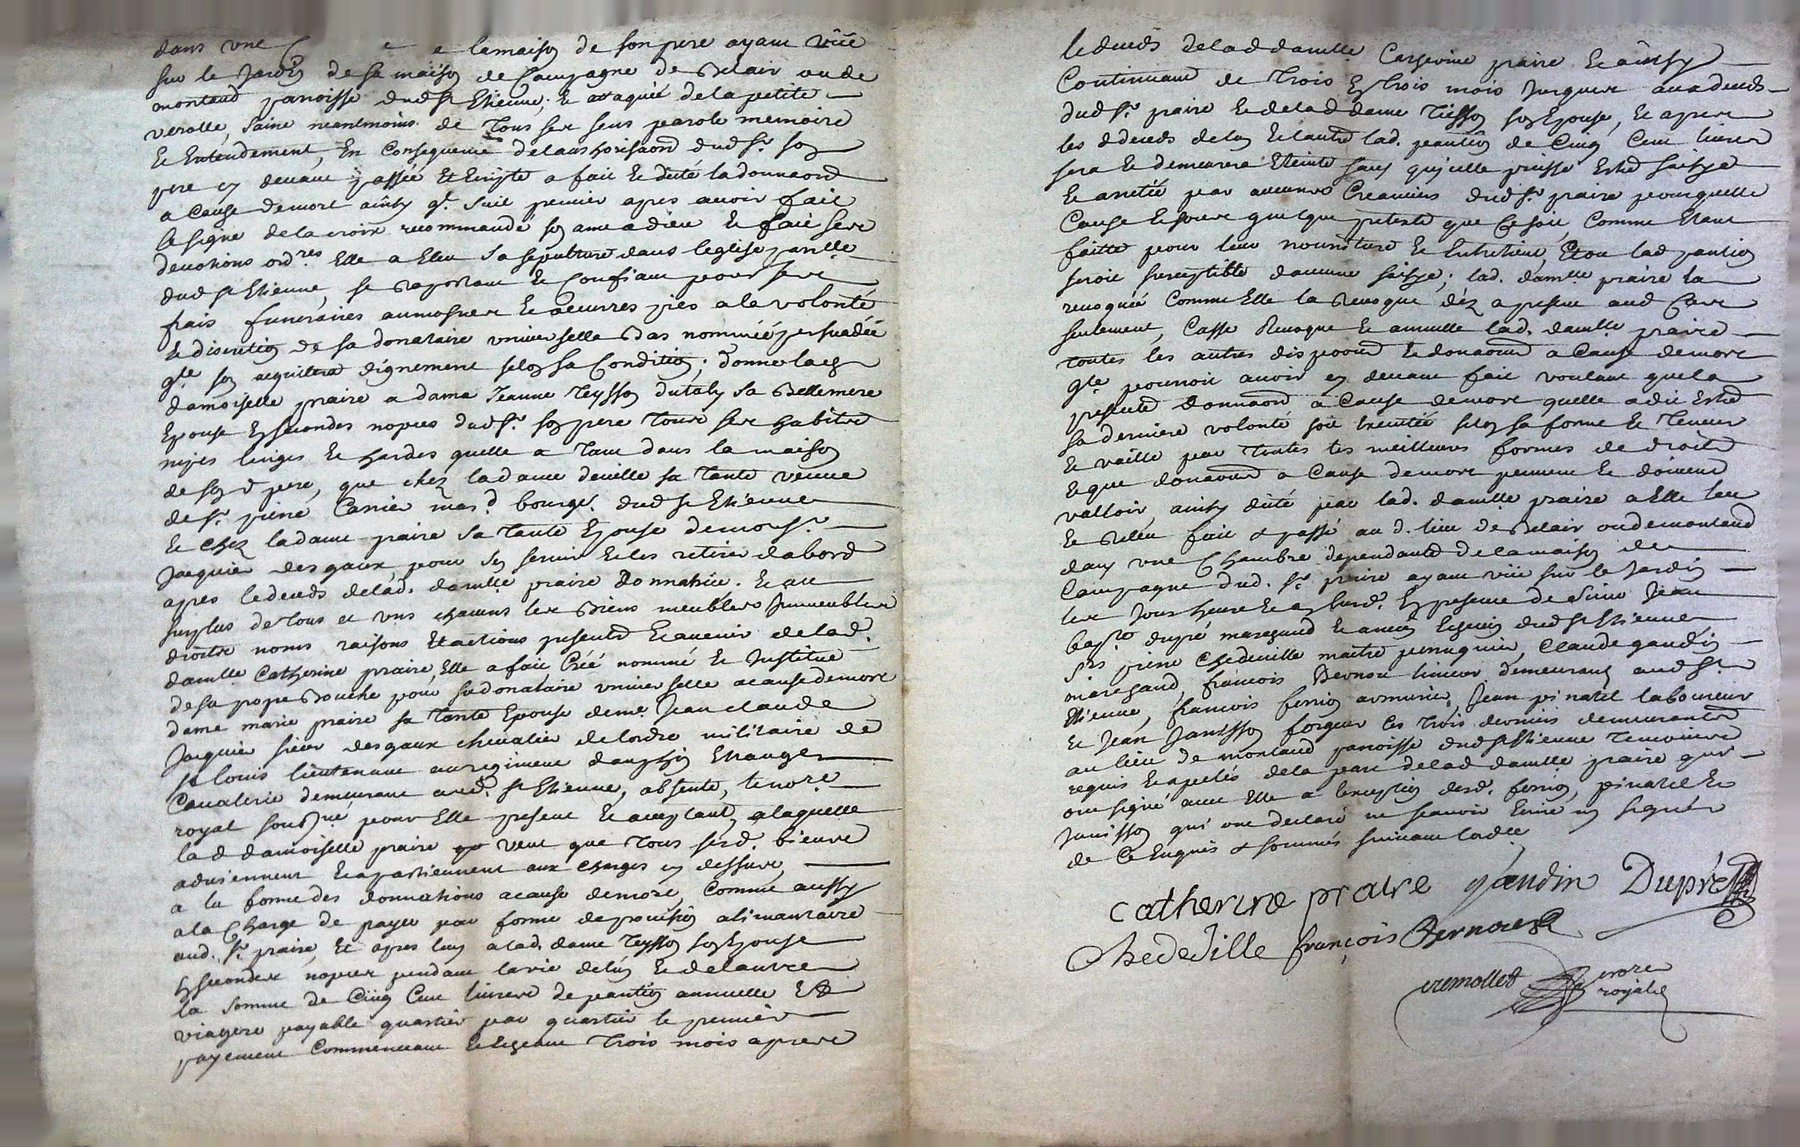 dans une c e lamaison de son pere ayant viüe
sur le Jardin de sa maison de Campagne de Belair ou de
montaud parroisse dud St Etienne, et attaquée de la petite
verolle, saine neantmoins de tous ses sens parole memoire
Et Entendement, En Consequence de dud Sr son
pere cy devant passée Et Ecrite a fait Et dicté la donnaond
a Cause de mort ainsy qe suit premier apres avoir fait
le signe de la croix recommandé son ame a dieu Et fait ses
devotions ordres Elle a Eleu sa sepulture dans leglise parlle
dud St Etienne, se raportant Et Confiant pour ses
frais funeraires aumosnes Et oeuvres pies a la volonté
Et discretion de sa donataire universelle bas nommée persuadée
qle son acquittera dignement selon sa Condition; donne lad
damoiselle praire a dame Jeanne Teysson dutaly sa Bellemere
Epouse En secondes nopces dud Sr son pere tous ses habits
nipes linges Et hardes quelle a tant dans la maison
de son d pere, que chez la dame deville sa tante veuve
de Sr pierre Carrier mard bourgs dud St Etienne
Et chez la dame praire sa tante Epouse de mons. Sr
Jacquier des gaux pour sen servir Et les retirer dabord
apres le deceds de lad. damlle praire Donnatrice. Et au
surplus de tous et uns chacuns ses Biens meubles Jmmeubles
droits noms raisons Et actions presents Et avenir de lad.
damlle Catherine praire, Elle a fait Créé nommé Et Jnstitué
de sa propre Bouche pour sa donataire universelle acause demort
dame marie praire sa tante Epouse de me Jean claude
Jacquier sieur des gaux chevalier de lordre militaire de
St louis lieutenant au regiment dauphin Etranger
Cavalerie demeurant aud. St Etienne, absente, le nore
royal sousné pour Elle present Et acceptant, a laquelle
la d damoiselle praire veut que tous sesd. biens
adviennent Et apartiennent aux charges cy dessus,
a la forme des donnations acause demort, Comme aussy
a la Charge de payer par forme de pention alimantaire
aud. Sr praire, Et apres luy a lad. dame Teysson son Epouse
En secondes nopces pendant la vie de lun Et de lautre
la somme de Cinq Cent livres de pention annuelle Et
viagere payable quartier par quartier le premier
payement Commencant Et Echeant trois mois apres
le deceds de la d damlle Catherine praire Et ainsy
Continuant de trois En trois mois Jusques au deceds
dud Sr praire Et de la d dame Teysson son Epouse, Et apres
les d deceds de lun Et lautre lad. pention de Cinq Cent livres
sera Et demeurera Eteinte sans quelle puisse Estre saisie
Et arretée par aucuns Creanciers dud Sr praire pour quelle
Cause Et sous quelque pretexte que Ce soit, Comme Etant
faitte pour leur nourriture Et Entretient, Et ou lad pantion
seroit susceptible daucune saisye; lad. damlle praire la
revoquée Comme Elle la revoque déz apresent aud Cas
seulement, Casse Revoque Et annulle lad. damlle praire
toutes les autres dispoond Et donaond a Cause demort
qle pourroit avoir cy devant fait voulant que la
presente donnaond a Cause demort quelle a dit Estre
sa derniere volonté soit Executée selon sa forme Et teneur
Et vaille par toutes les meilleures formes de droits
Et que donaond a Cause demort peuvent Et doivent
valloir, ainsy dicté par lad. damlle praire a Elle leu
Et Releu fait & passé au d. lieu de Belair ou de montaud
dans une Chambre dependante de la maison de
Campagne dud. Sr praire ayant viüe sur le Jardin
les Jour heure Et an susd. En presence de Sieur Jean
bapte dupré marchand Et ancien Echevin dud St Etienne
Srs pierre Chedeville maitre perruquier, Claude gaudin
marchand, francois Bernou limeur demeurants aud St
Etienne, francois ferrio armurier, Jean pinatel laboureur
Et Jean Janisson forgeur les trois derniers demeurants
au lieu de montaud parroisse dud St Etienne temoins
requis Et apellés de la part de lad damlle praire qui
ont signé avec Elle a lexception desd. ferrio, pinatel Et
Janisson qui ont declaré ne scavoir Ecrire ny signer
de Ce Enquis & sommés suivant lordce
catherine praire gaudin Dupré
Chedeville françois Bernou
cremollet nore
royal